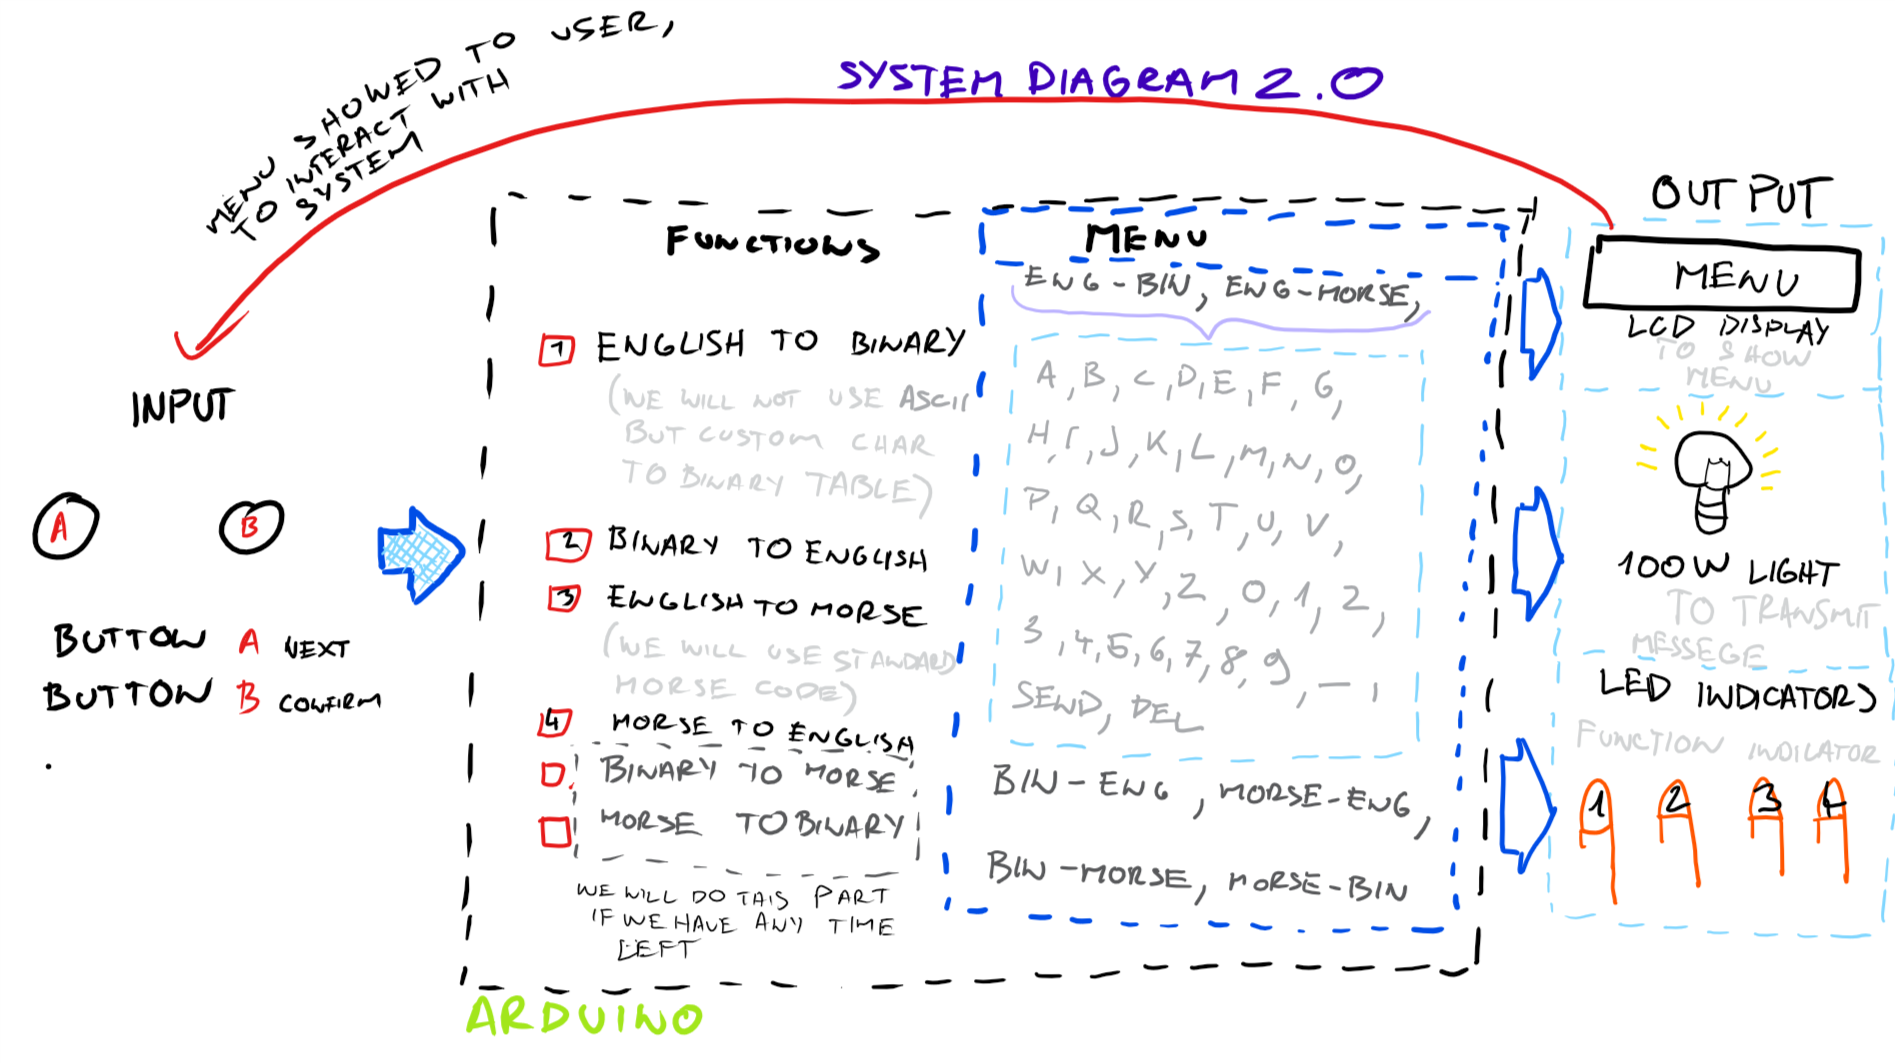 MENU SHOWED TO USER,
TO INTERACT WITH
SYSTEM
SYSTEM DIAGRAM 2.0
INPUT
A
B
BUTTON A NEXT
BUTTON B CONFIRM
FUNCTIONS
1 ENGLISH TO BINARY
(WE WILL NOT USE ASCII
BUT CUSTOM CHAR
TO BINARY TABLE)
2 BINARY TO ENGLISH
3 ENGLISH TO MORSE
(WE WILL USE STANDARD
MORSE CODE)
4 MORSE TO ENGLISH
BINARY TO MORSE
MORSE TO BINARY
WE WILL DO THIS PART
IF WE HAVE ANY TIME
LEFT
MENU
ENG-BIN, ENG-MORSE,
A, B, C, D, E, F, G,
H, I, J, K, L, M, N, O,
P, Q, R, S, T, U, V,
W, X, Y, Z, 0, 1, 2,
3, 4, 5, 6, 7, 8, 9, –,
SEND, DEL
BIN-ENG, MORSE-ENG,
BIN-MORSE, MORSE-BIN
ARDUINO
OUTPUT
MENU
LCD DISPLAY
TO SHOW
MENU
100W LIGHT
TO TRANSMIT
MESSEGE
LED INDICATORS
FUNCTION INDICATOR
1 2 3 4